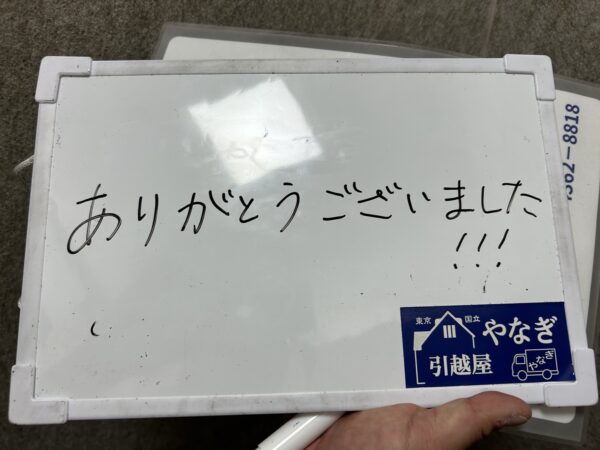 ありがとうございました
!!!
東京 国立 やなぎ
引越屋
やなぎ
362-8818